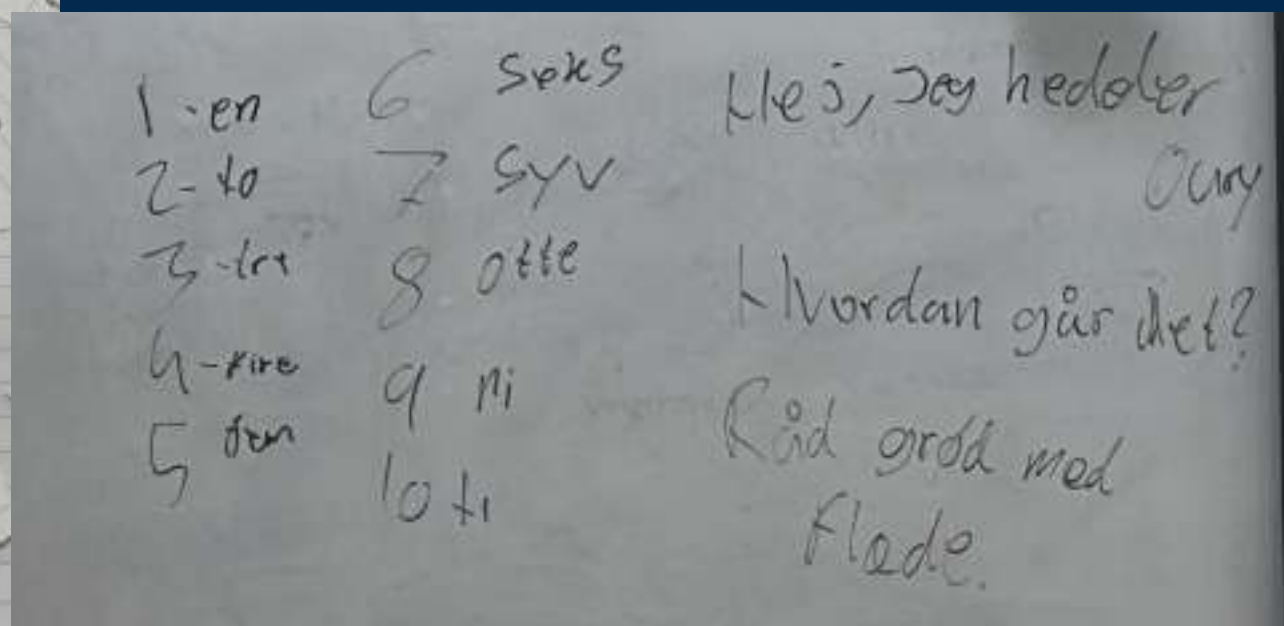 1-en
2-to
3-tre
4-fire
5 fem
6 seks
7 syv
8 otte
9 ni
10 ti
Hej, Jeg hedder
Hvordan går det?
Råd grød med
Fløde.